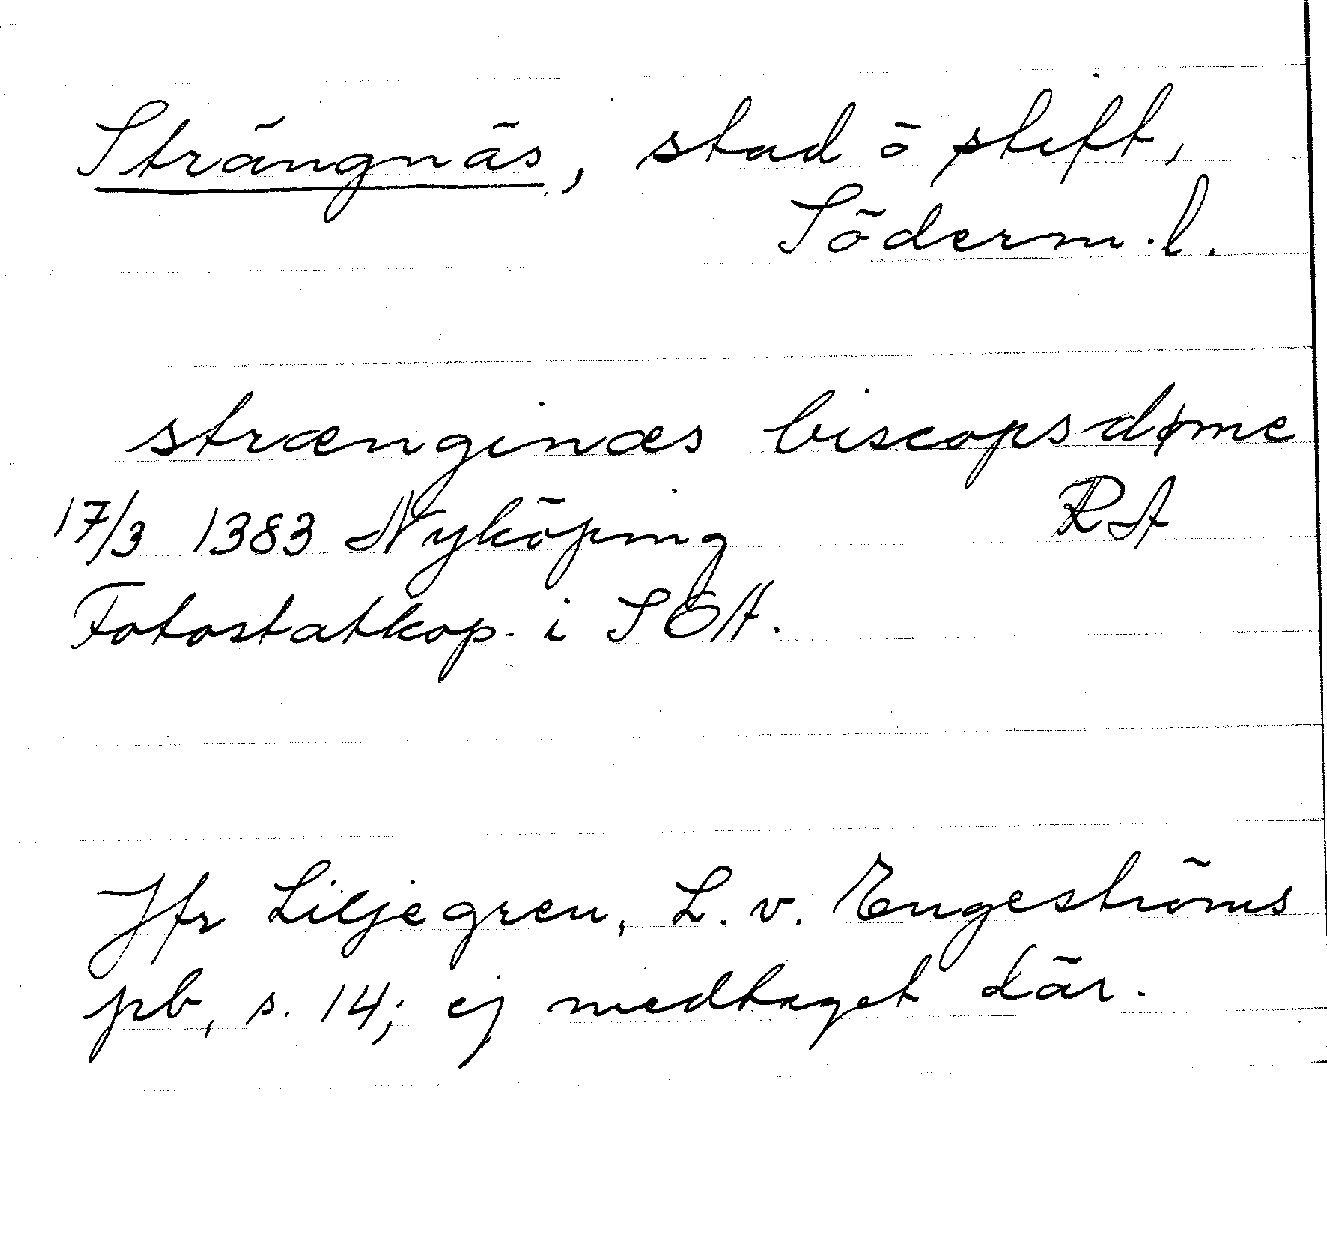 Strängnäs, stad o stift,
Söderm.l.
stænginæs biscopsdøme
17/3 1383 Nyköping RA
Fotostatkop. i SOA.
Jfr Liljegren, L. v. Engeströms
pb, s. 14; ej medtaget där.